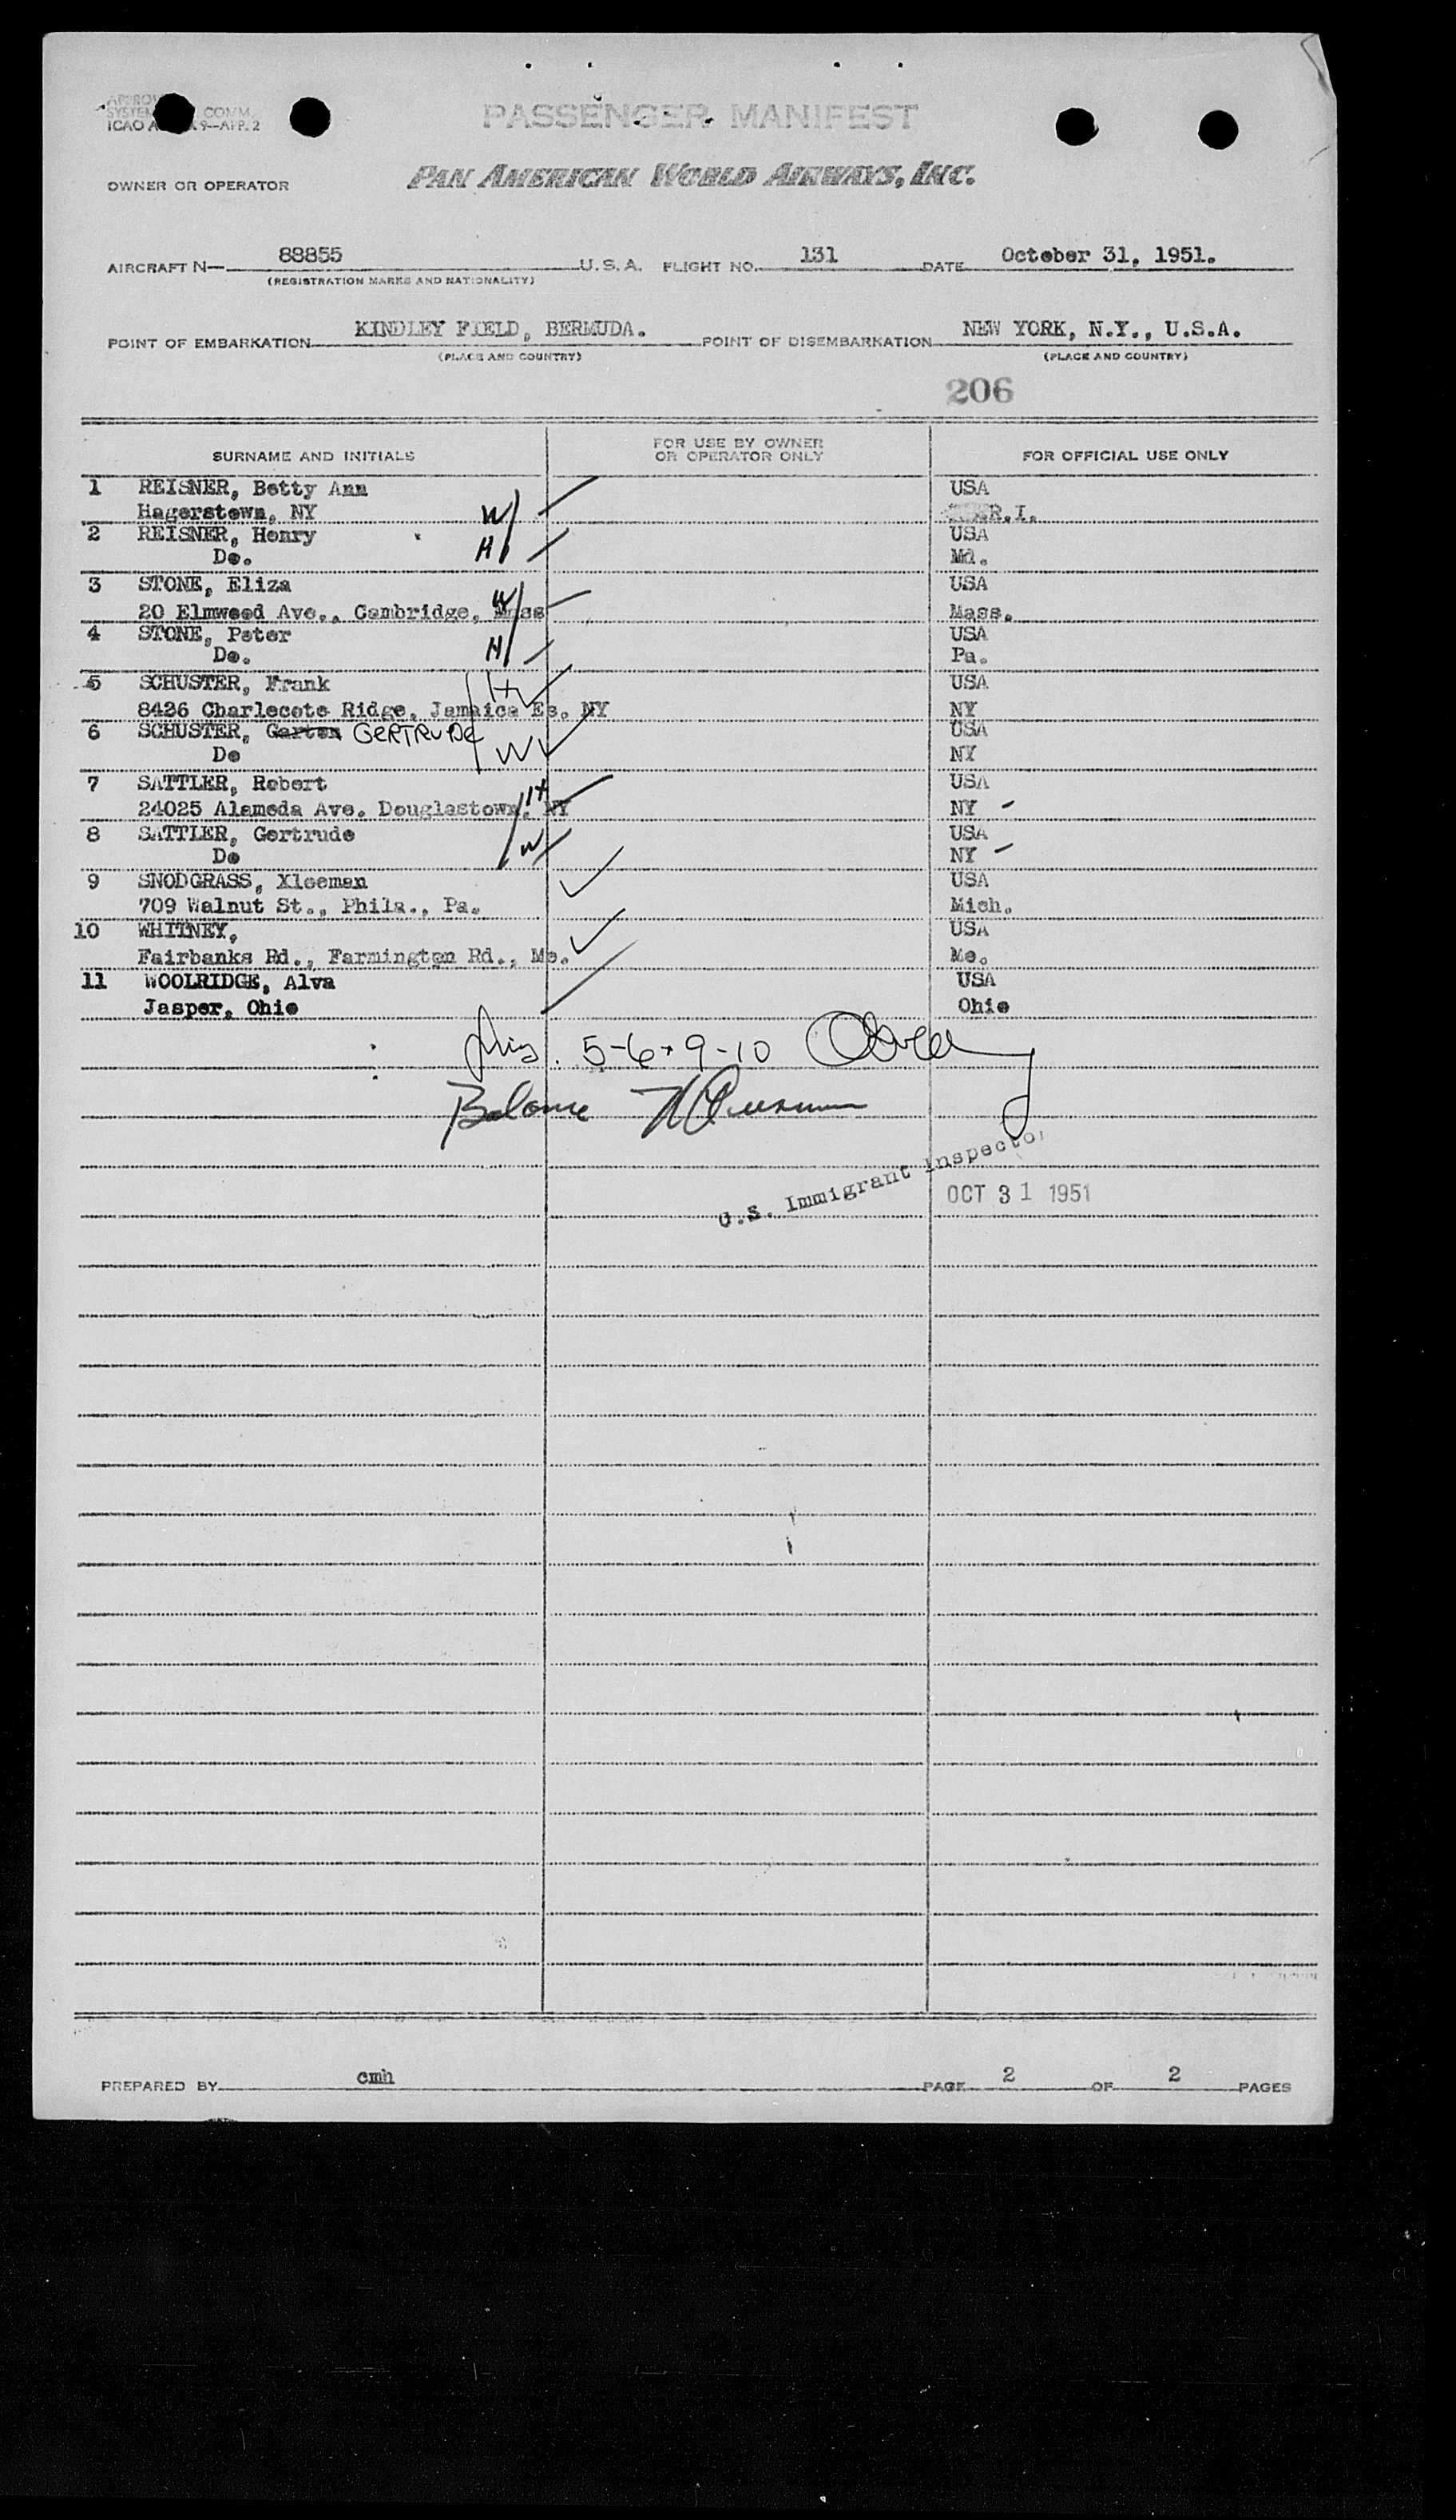 PASSENGER MANIFEST
ICAO
OWNER OR OPERATOR PAN AMERICAN WORLD AIRWAYS, INC.
AIRCRAFT N— 88855 U.S.A. FLIGHT NO. 131 DATE October 31, 1951.
(REGISTRATION MARKS AND NATIONALITY)
POINT OF EMBARKATION KINDLEY FIELD, BERMUDA. POINT OF DISEMBARKATION NEW YORK, N.Y., U.S.A.
(PLACE AND COUNTRY) (PLACE AND COUNTRY)
206
SURNAME AND INITIALS FOR USE BY OWNER OR OPERATOR ONLY FOR OFFICIAL USE ONLY
1 REISNER, Betty Ann USA
Hagerstown, NY W R.I.
2 REISNER, Henry USA
Do. H Md.
3 STONE, Eliza USA
20 Elmwood Ave., Cambridge, Mass W Mass.
4 STONE, Peter USA
Do. H Pa.
5 SCHUSTER, Frank H USA
8426 Charlecote Ridge, Jamaica Es, NY NY
6 SCHUSTER, GERTRUDE USA
Do W NY
7 SATTLER, Robert H USA
24025 Alameda Ave. Douglastown, NY NY
8 SATTLER, Gertrude USA
Do W NY
9 SNODGRASS, Kleeman USA
709 Walnut St., Phila., Pa. Mich.
10 WHITNEY, USA
Fairbanks Rd., Farmington Rd., Me. Me.
11 WOOLRIDGE, Alva USA
Jasper, Ohio Ohio
5-6+9-10
Balance
U.S. Immigrant Inspector
OCT 31 1951
PREPARED BY cmh PAGE 2 OF 2 PAGES